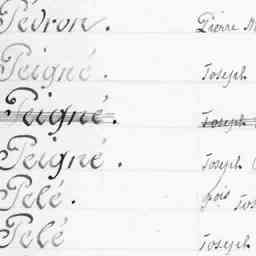 Pédron. Pierre M
Peigné. Joseph
Peigné. Joseph
Peigné. Joseph
Pelé. fois Jos
Pelé Joseph